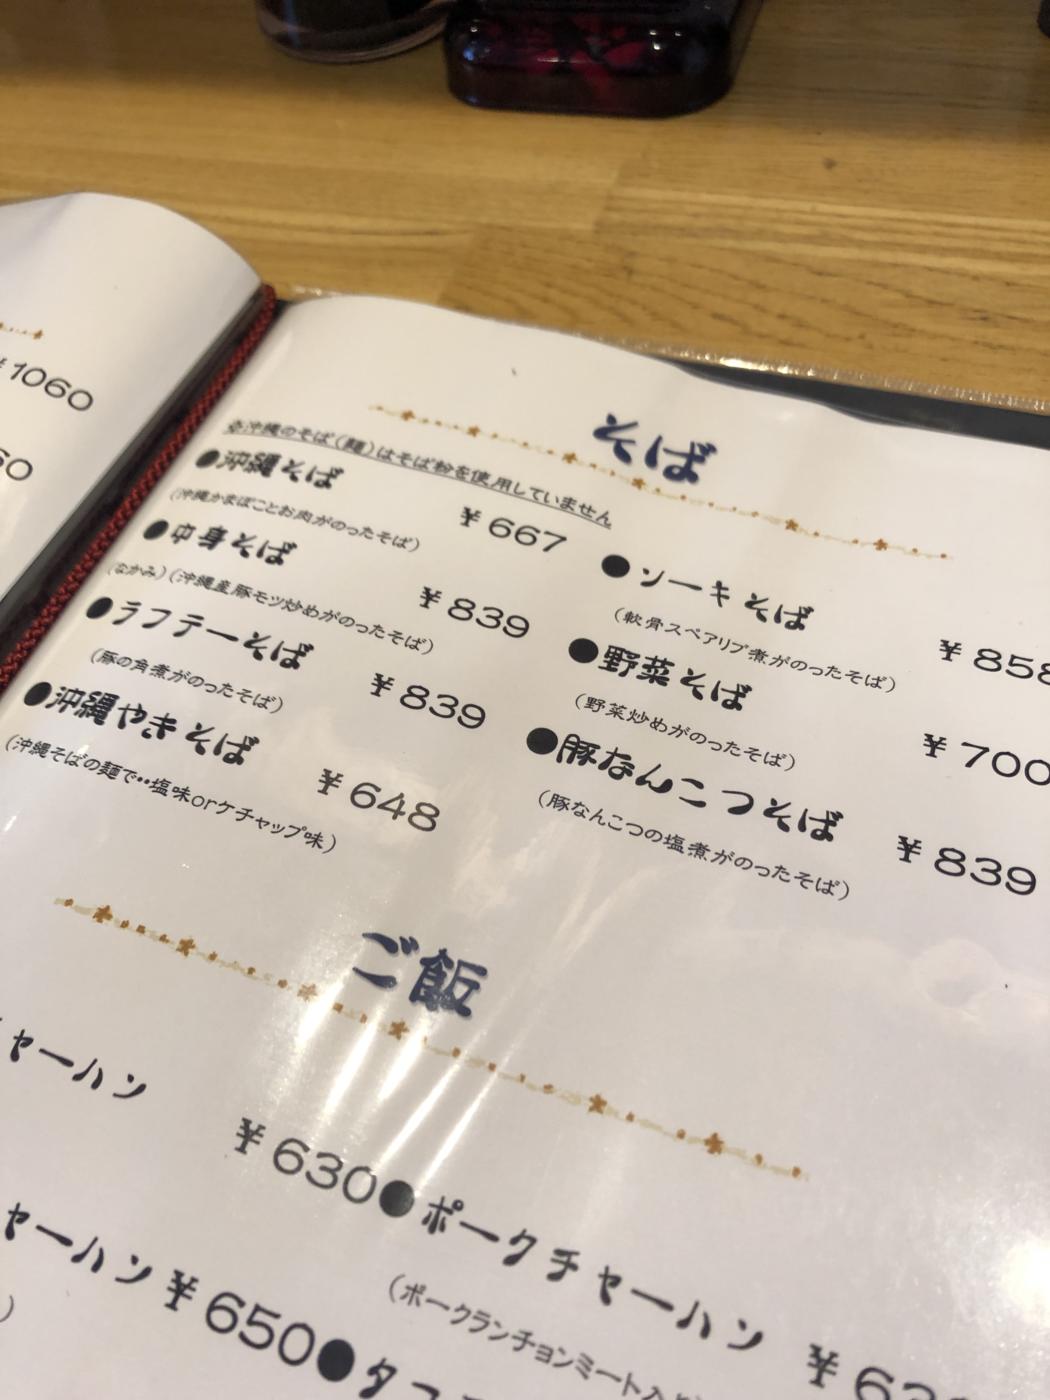 ¥1060
60
そば
※沖縄のそば(麺)はそば粉を使用していません
●沖縄そば ¥667
(沖縄かまぼことお肉がのったそば)
●中身そば ¥839
(なかみ)(沖縄産豚モツ炒めがのったそば)
●ラフテーそば ¥839
(豚の角煮がのったそば)
●沖縄やきそば ¥648
(沖縄そばの麺で‥塩味orケチャップ味)
●ソーキそば ¥858
(軟骨スペアリブ煮がのったそば)
●野菜そば ¥700
(野菜炒めがのったそば)
●豚なんこつそば ¥839
(豚なんこつの塩煮がのったそば)
ご飯
チャーハン ¥630
●ポークチャーハン ¥63
(ポークランチョンミート入り
ャーハン ¥650
●タコ
)